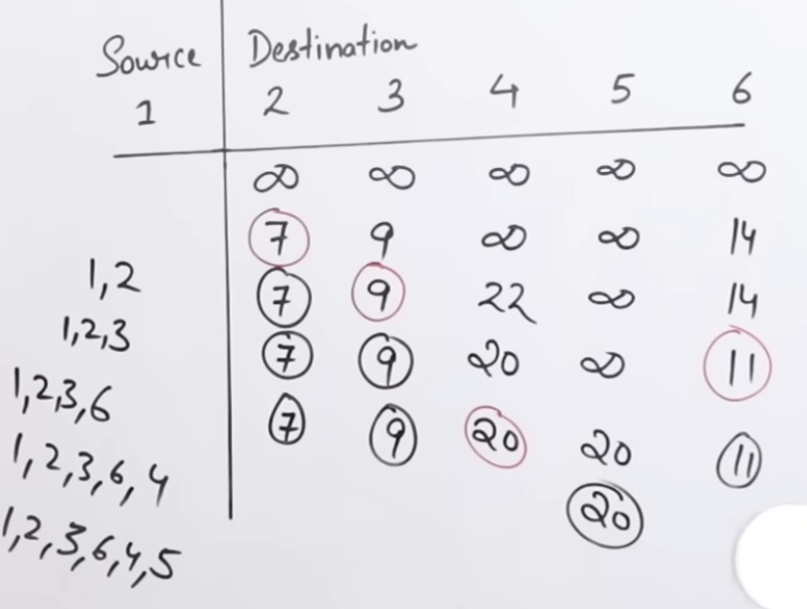 Source Destination
1 2 3 4 5 6
∞ ∞ ∞ ∞ ∞
7 9 ∞ ∞ 14
1,2 7 9 22 ∞ 14
1,2,3 7 9 20 ∞ 11
1,2,3,6 7 9 20 20 11
1,2,3,6,4 20
1,2,3,6,4,5